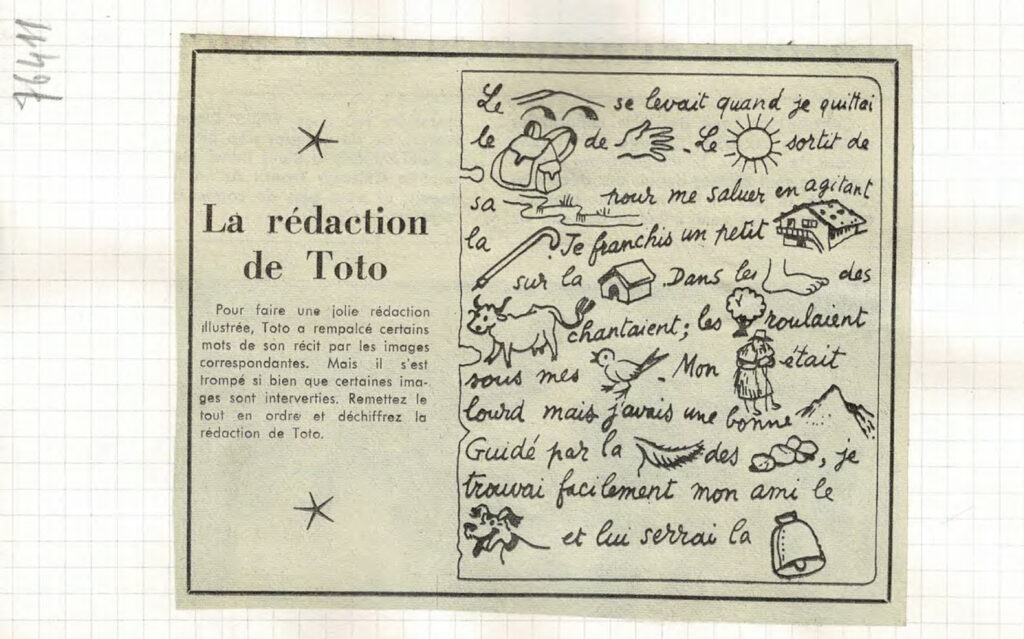 76411
La rédaction
de Toto
Pour faire une jolie rédaction
illustrée, Toto a rempalcé certains
mots de son récit par les images
correspondantes. Mais il s'est
trompé si bien que certaines ima-
ges sont interverties. Remettez le
tout en ordre et déchiffrez la
rédaction de Toto.
Le se levait quand je quittai
le de . Le sortit de
sa pour me saluer en agitant
la . Je franchis un petit
sur la . Dans les des
chantaient ; les roulaient
sous mes . Mon était
lourd mais j'avais une bonne
Guidé par la des , je
trouvai facilement mon ami le
et lui serrai la